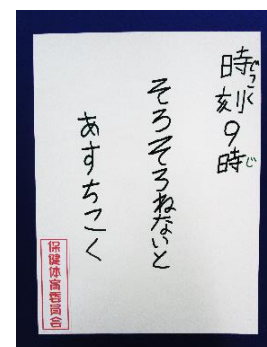 時刻9時
そろそろねないと
あすちこく
保健体育委員会